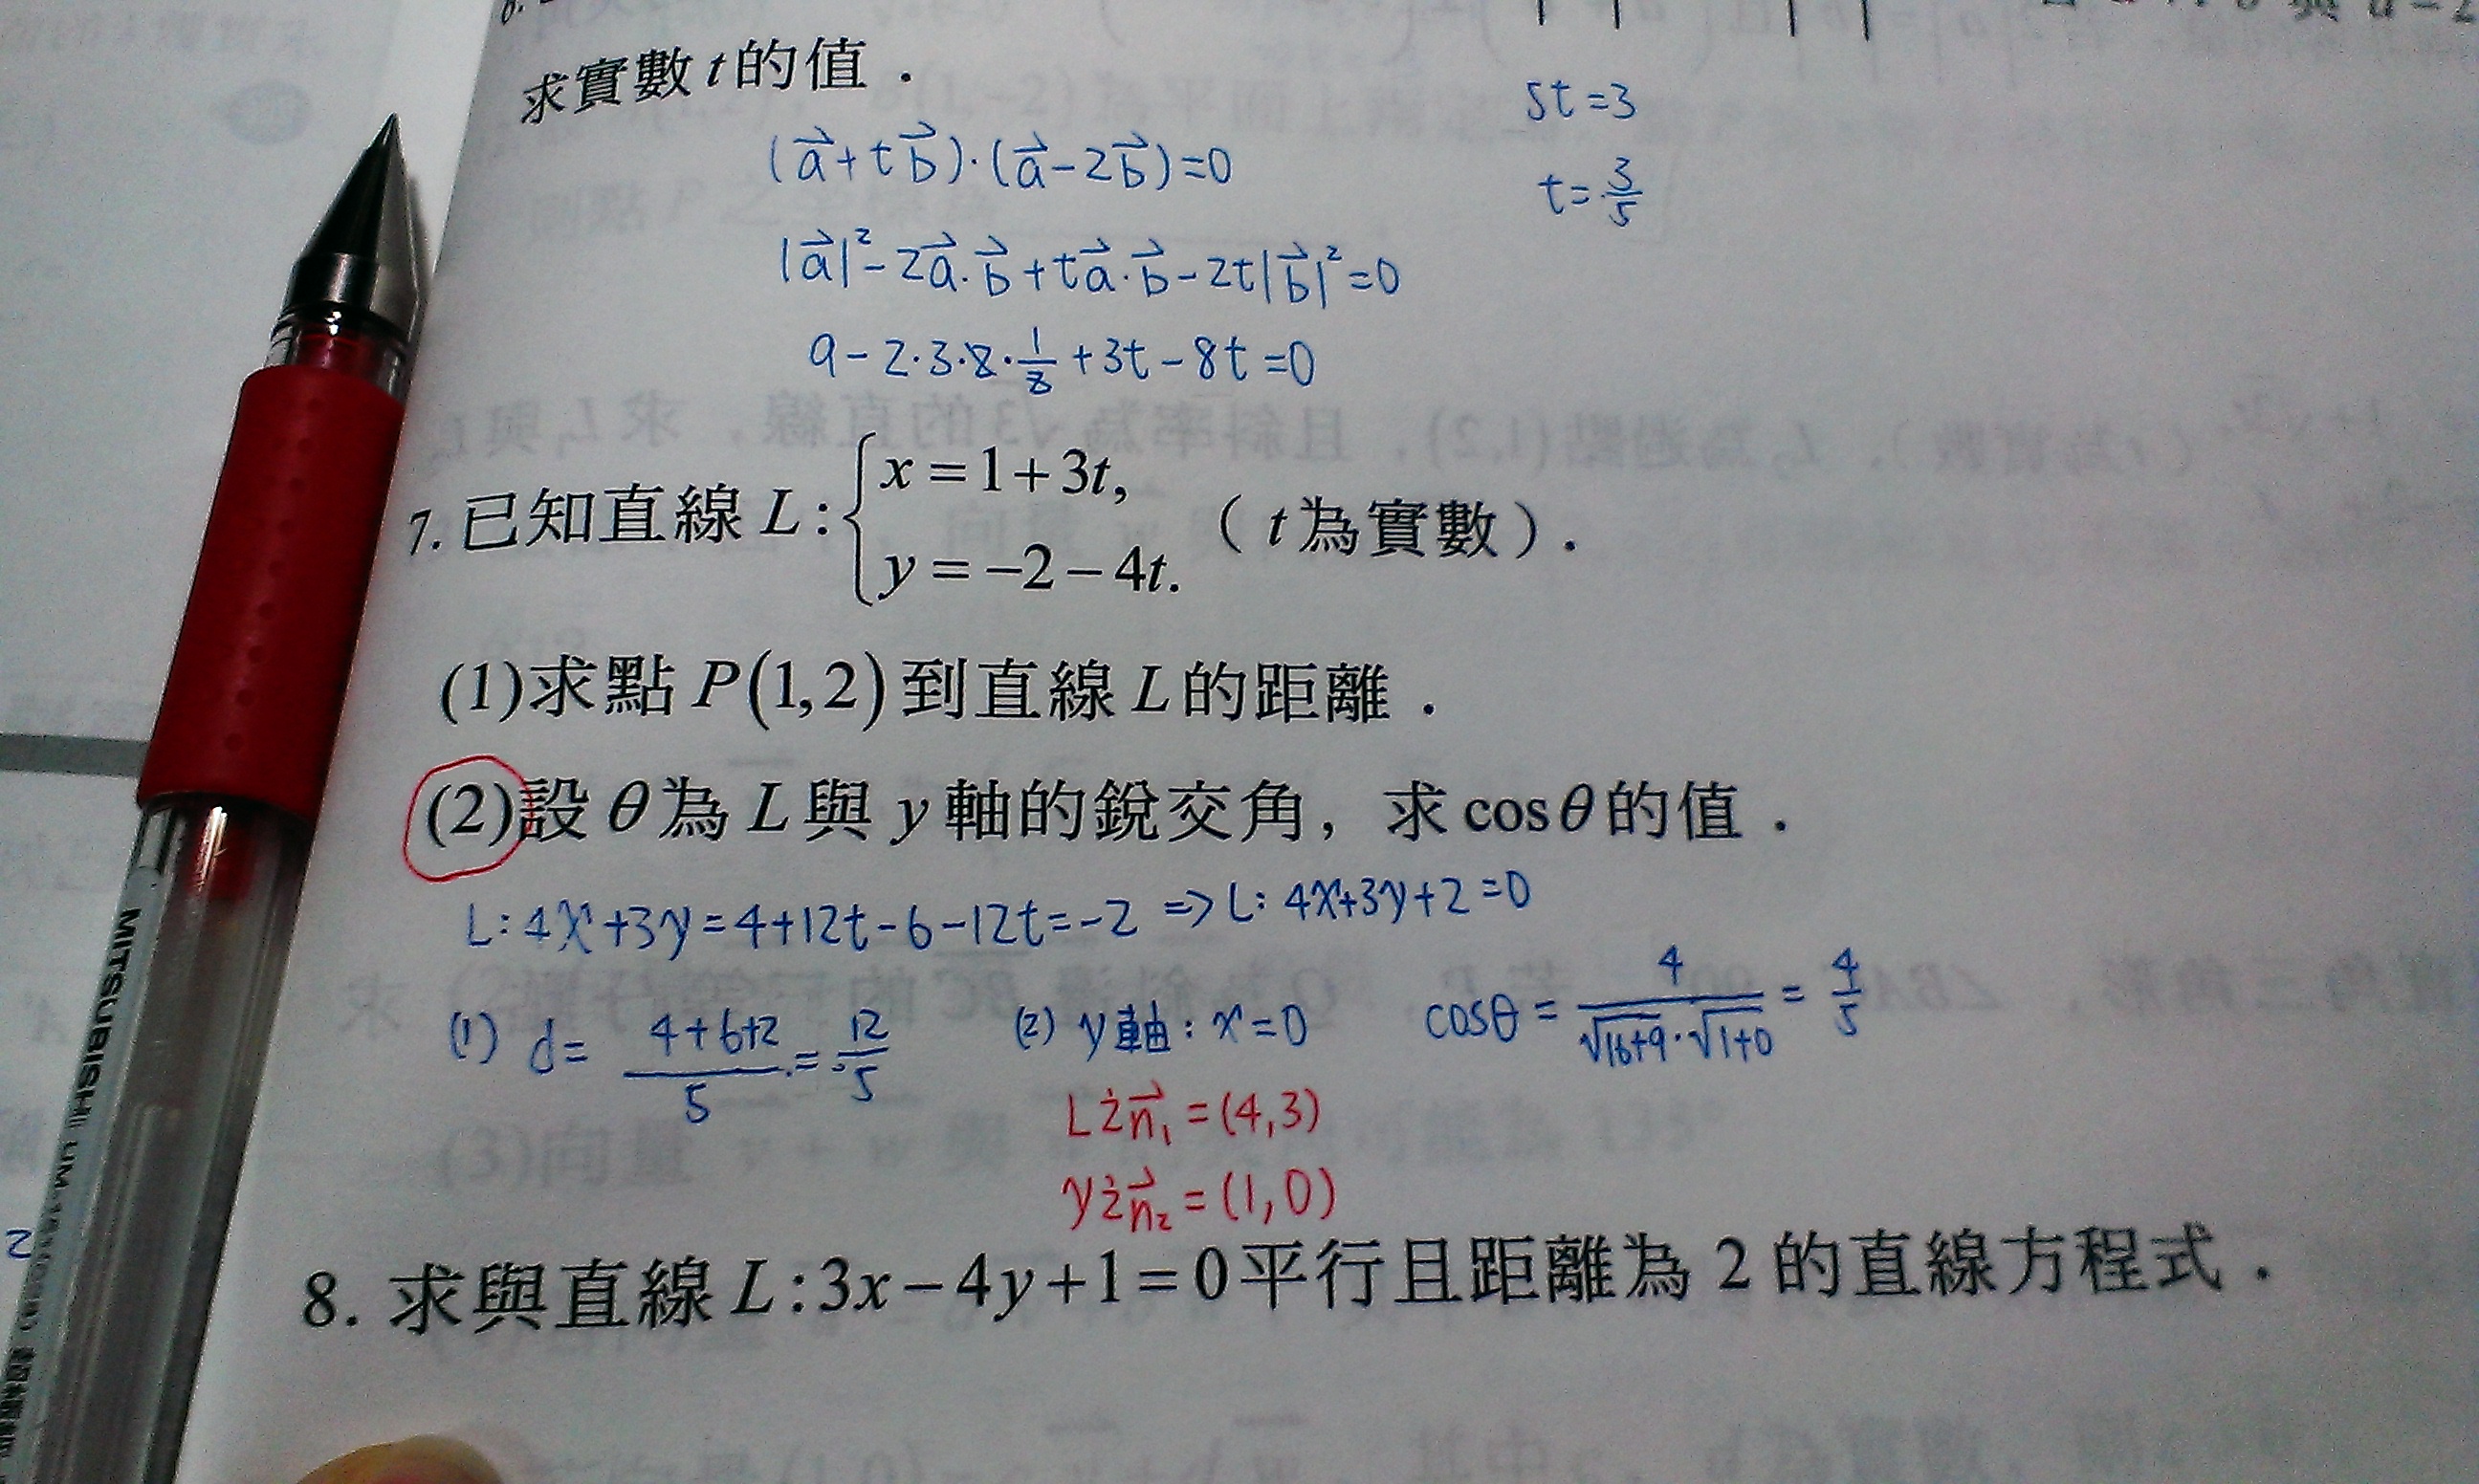 求實數 t 的值．
(a⃗+tb⃗)·(a⃗-2b⃗)=0
|a⃗|²-2a⃗·b⃗+ta⃗·b⃗-2t|b⃗|²=0
9-2·3·2·1/2+3t-8t=0
5t=3
t=3/5
7. 已知直線 L:{x=1+3t,
y=-2-4t. （t為實數）.
(1)求點 P(1,2) 到直線 L 的距離．
(2)設 θ 為 L 與 y 軸的銳交角，求 cosθ 的值．
L:4x+3y=4+12t-6-12t=-2 => L:4x+3y+2=0
(1) d=(4+6+2)/5=12/5 (2) y軸:x=0 cosθ=4/(√16+9·√1+0)=4/5
L之n⃗₁=(4,3)
y之n⃗₂=(1,0)
8. 求與直線 L:3x-4y+1=0 平行且距離為 2 的直線方程式．
MITSUBISHI